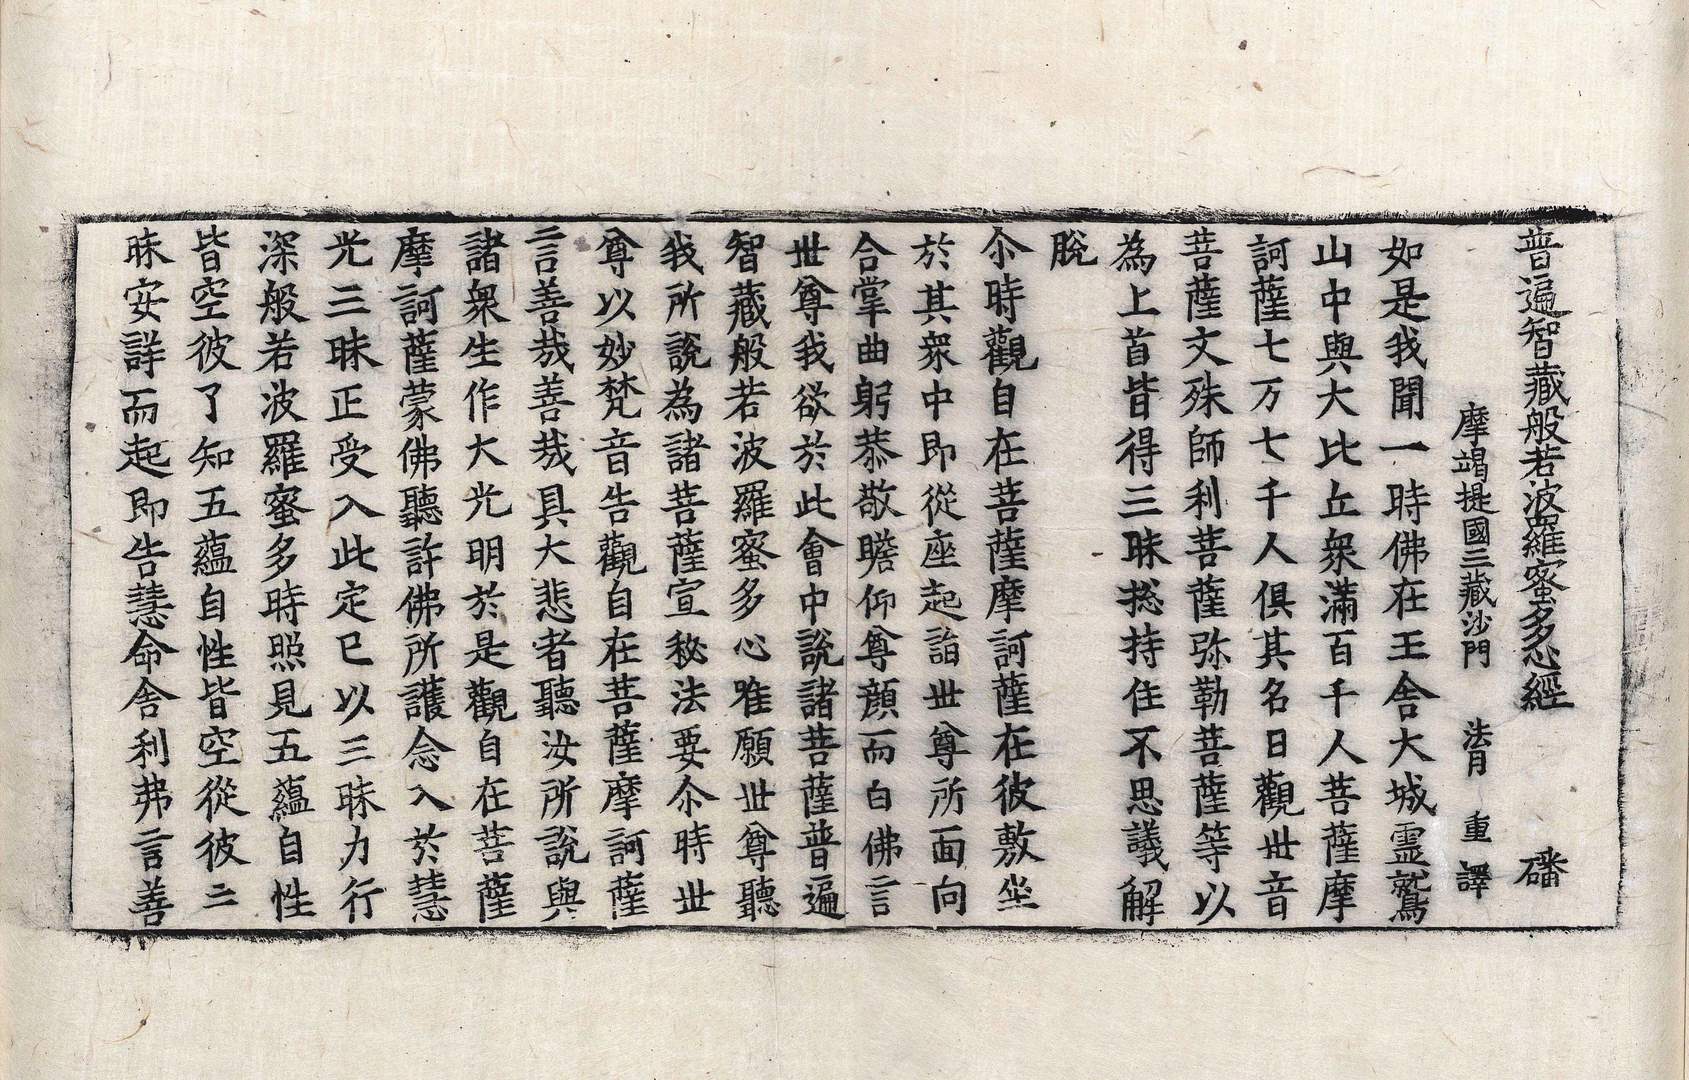 普遍智藏般若波羅蜜多心經 磻
摩竭提國三藏沙門 法月 重 譯
如是我聞一時佛在王舍大城靈鷲
山中與大比丘衆滿百千人菩薩摩
訶薩七万七千人俱其名曰觀世音
菩薩文殊師利菩薩弥勒菩薩等以
為上首皆得三昧捴持住不思議解
脫
尒時觀自在菩薩摩訶薩在彼敷坐
於其衆中即從座起詣世尊所面向
合掌曲躬恭敬瞻仰尊顏而白佛言
世尊我欲於此會中說諸菩薩普遍
智藏般若波羅蜜多心唯願世尊聽
我所說為諸菩薩宣秘法要尒時世
尊以妙梵音告觀自在菩薩摩訶薩
言善哉善哉具大悲者聽汝所說與
諸衆生作大光明於是觀自在菩薩
摩訶薩蒙佛聽許佛所護念入於慧
光三昧正受入此定已以三昧力行
深般若波羅蜜多時照見五蘊自性
皆空彼了知五蘊自性皆空從彼三
昧安詳而起即告慧命舍利弗言善